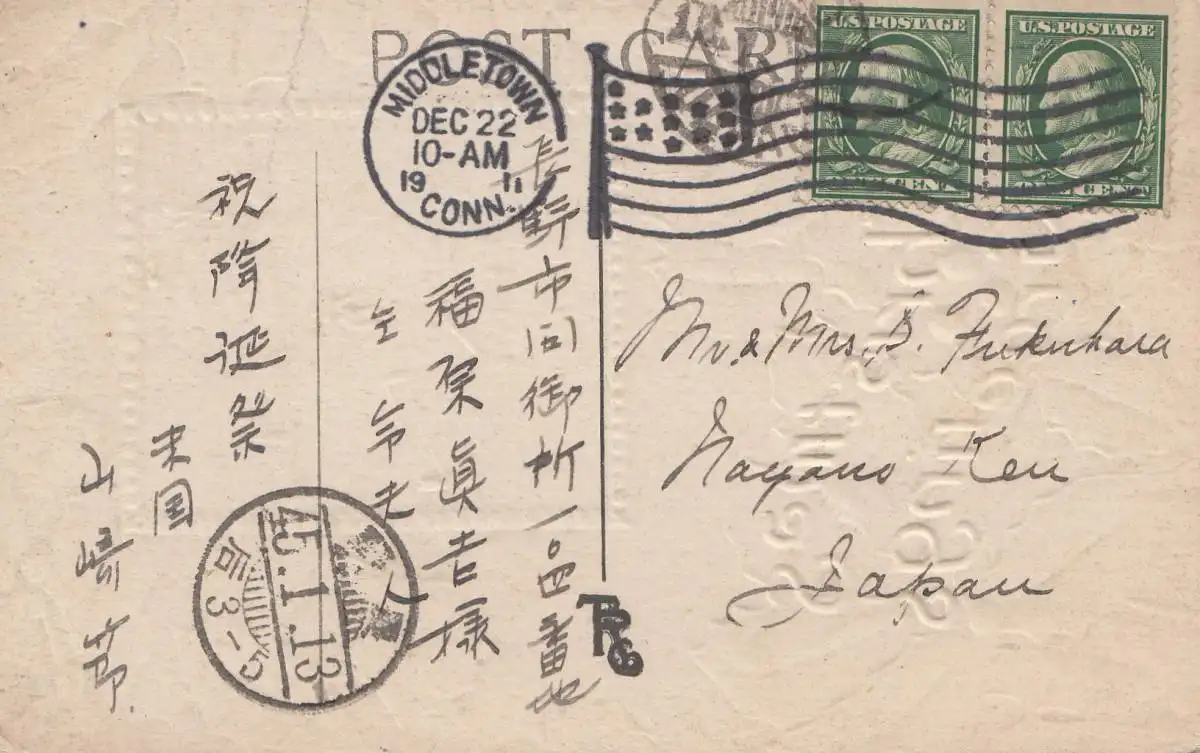 POST CARD
U.S. POSTAGE
U.S. POSTAGE
MIDDLETOWN
DEC 22
10-AM
1911
CONN.
Mr. & Mrs. S. Fukuhara
Nagano Ken
Japan
長野市向御所一〇四番地
福原眞吉様
仝 令夫人
祝降誕祭
米国
山崎節
45.1.13
后3-5